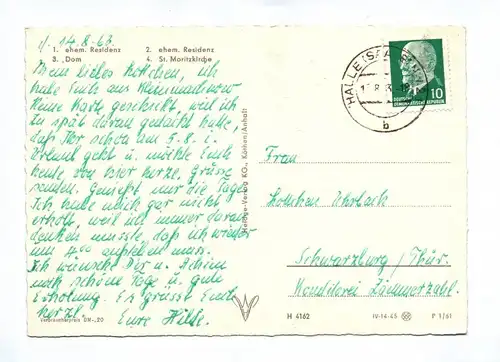 d. 14.8.63
1. ehem. Residenz 2. ehem. Residenz
3. Dom 4. St. Moritzkirche
Mein liebes Lottchen, ich
habe Euch aus Kleinmachnow
keine Karte geschickt, weil ich
zu spät daran gedacht habe,
daß Ihr schon am 5.8. i.
Urlaub geht u. möchte Euch
heute von hier herzl. Grüsse
senden. Genießt nur die Tage
Ich habe mich gar nicht
erholt, weil ich immer daran
denken musste, daß ich wieder
um 4°° aufstehen muss.
Ich wünsche Dir u. Achim
noch schöne Tage u. gute
Erholung. Es grüsst Euch
herzl. Eure Hilde.
Verbraucherpreis DM -,20
Heldge-Verlag KO., Köthen/Anhalt
HALLE (SAALE)
b
DEUTSCHE
DEMOKRATISCHE REPUBLIK
10
Frau
Lottchen
Schwarzburg/Thür.
Konditorei
H 4162 IV-14-45 P 1/61